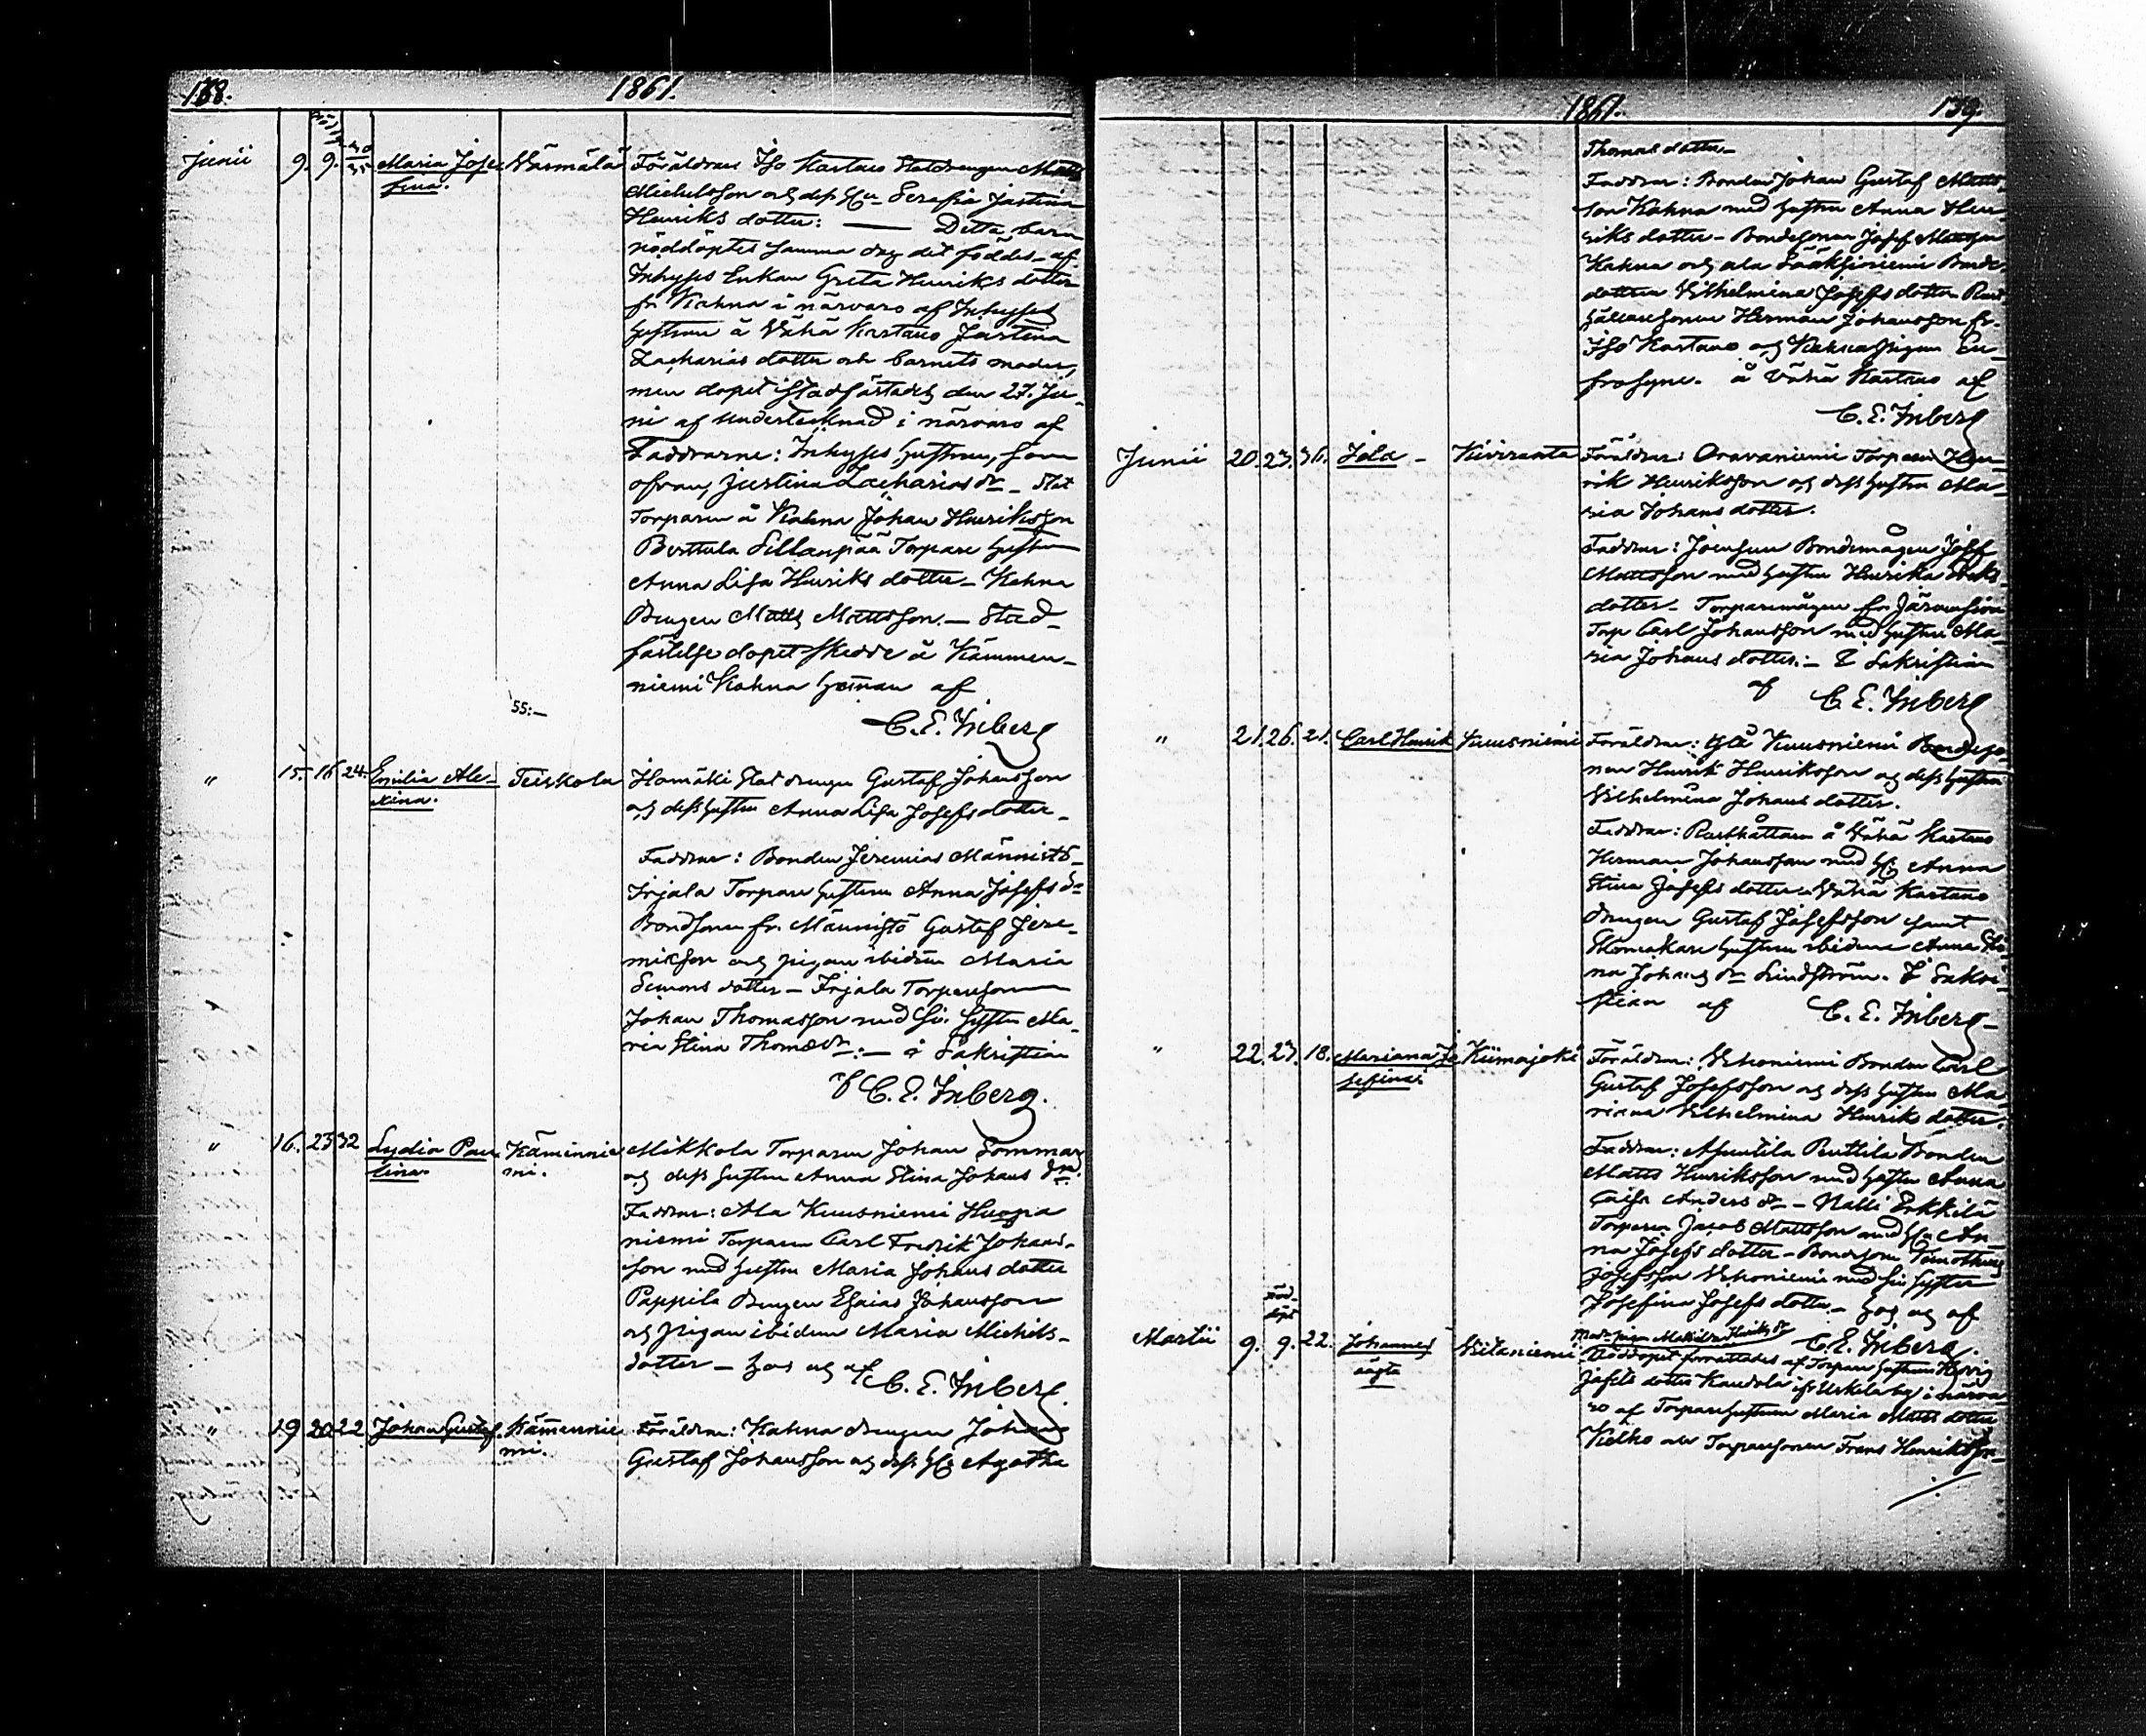 138.
1861.
Junii 9. 9. Maria Jose- Wärmälä Föräldrar Iso Kartano Statdrengen Matts
fina. Michelsson och dess Hu Serafia Justina
Henriks dotter: — Detta barn
nöddöptes samma dag det föddes af
Inhyses Enkan Greta Henriks dotter
fr. Kahna i närvaro af Inhyses
hustrun å Vähä Kartano Justina
Zacharias dotter och barnets moder,
men dopet stadfästades den 27. Ju-
ni af undertecknad i närvaro af
Faddrarne: Inhyses hustrun, som
ofvan, Justina Zacharias dr. Stat
Torparen å Kahna Johan Henriksson
Berttula Sillanpää Torpare hustrun
Anna Lisa Henriks dotter - Kahna
Drengen Matts Mattsson. — Stad-
fästelse dopet skedde å Kämmen-
niemi Kahna heman af
55:—
C. E. Inberg
" 15. 16 24. Emilia Ale- Teiskola Hamäki Statdrengen Gustaf Johansson
xina. och dess hustru Anna Lisa Josefs dotter.
Faddrar: Bonden Jeremias Männistö-
Irjala Torpare hustrun Anna Josefs dr
Bondsonen fr. Männistö Gustaf Jere-
miksson och pigan ibidem Maria
Simons dotter - Irjala Torparesonen
Johan Thomasson med sin hustru Ma-
ria Stina Thomædr:— i Sakristian
af C. E. Inberg.
" 16. 23 32 Lydia Pau- Käminnie- Mikkola Torparen Johan Sommar
lina. mi. och dess hustru Anna Stina Johans dr.
Faddrar: Ala Kuusniemi Huopa
niemi Torparen Carl Fredrik Johans-
son med hustru Maria Johans dotter
Pappila Drengen Esaias Johansson
och pigan ibidem Maria Michels-
dotter — hos och af
C. E. Inberg.
" 19 20 22. Johan Gustaf Kämennie- Föräldrar: Kahna drengen Johan
mi. Gustaf Johansson och dess Hu Agatha
1861.
139.
Thomas dotter.
Faddrar: Bonden Johan Gustaf Matts-
son Kahna med hustru Anna Hen-
riks dotter - Bondesonen Josef Mattsson
Kahna och ala Sääksjiniemi Bonde-
dottren Wilhelmina Josefs dotter Rust-
hållaresonen Herman Johansson fr.
Iso Kartano och Kahna pigan Eu-
frosyne. å Vähä Kartano af
C. E. Inberg
Junii 20. 23. 36. Ida - Kiviranta Föräldrar: Oravaniemi Torparen Hen-
rik Henriksson och dess hustru Ma-
ria Johans dotter.
Faddrar: Joensuu Bondemågen Josef
Mattsson med hustru Henrika
dotter - Torparemågen fr. Järvensivu
Torp Carl Johansson med hustru Ma-
ria Johans dotter. — I Sakristian
af C. E. Inberg
" 21. 26. 21. Carl Henrik Kuusniemi Föräldrar: Ylä Kuusniemi Bondeso-
nen Henrik Henriksson och dess hustru
Wilhelmina Johans dotter.
Faddrar: Rusthållaren å Vähä Kartano
Herman Johansson med Hu Anna
Stina Josefs dotter - Vähä Kartano
drengen Gustaf Josefsson samt
Skomakare hustrun ibidem Anna Sti-
na Johans dr Lindström. I Sakri-
stian af C. E. Inberg
" 22. 23. 18. Mariana Jo- Kiimajoki Föräldrar: Uhoniemi Bonden Carl
sefina. Gustaf Josefsson och dess hustru Ma-
riana Wilhelmina Henriks dotter.
Faddrar: Asuntila Penttilä Bonden
Matts Henriksson med hustru Anna
Caisa Anders dr - Nalli Erkkilä
Torparen Jacob Mattsson med Hu An-
na Josefs dotter - Bondsonen Timotheus
Josefsson Uhoniemi med sin syster
Josefina Josefs dotter - hos och af
C. E. Inberg.
nöd-
döpt
Martii 9. 9. 22. Johannes Viitaniemi Mod. pigan Matilda Henriks dr
oägta Nöddopet förrättades af Torpare hustrun Hedvig
Josefs dotter Kaudola i närva-
ro af Torparehustrun Maria Matts dotter
Kelho och Torparesonen Frans Henriksson